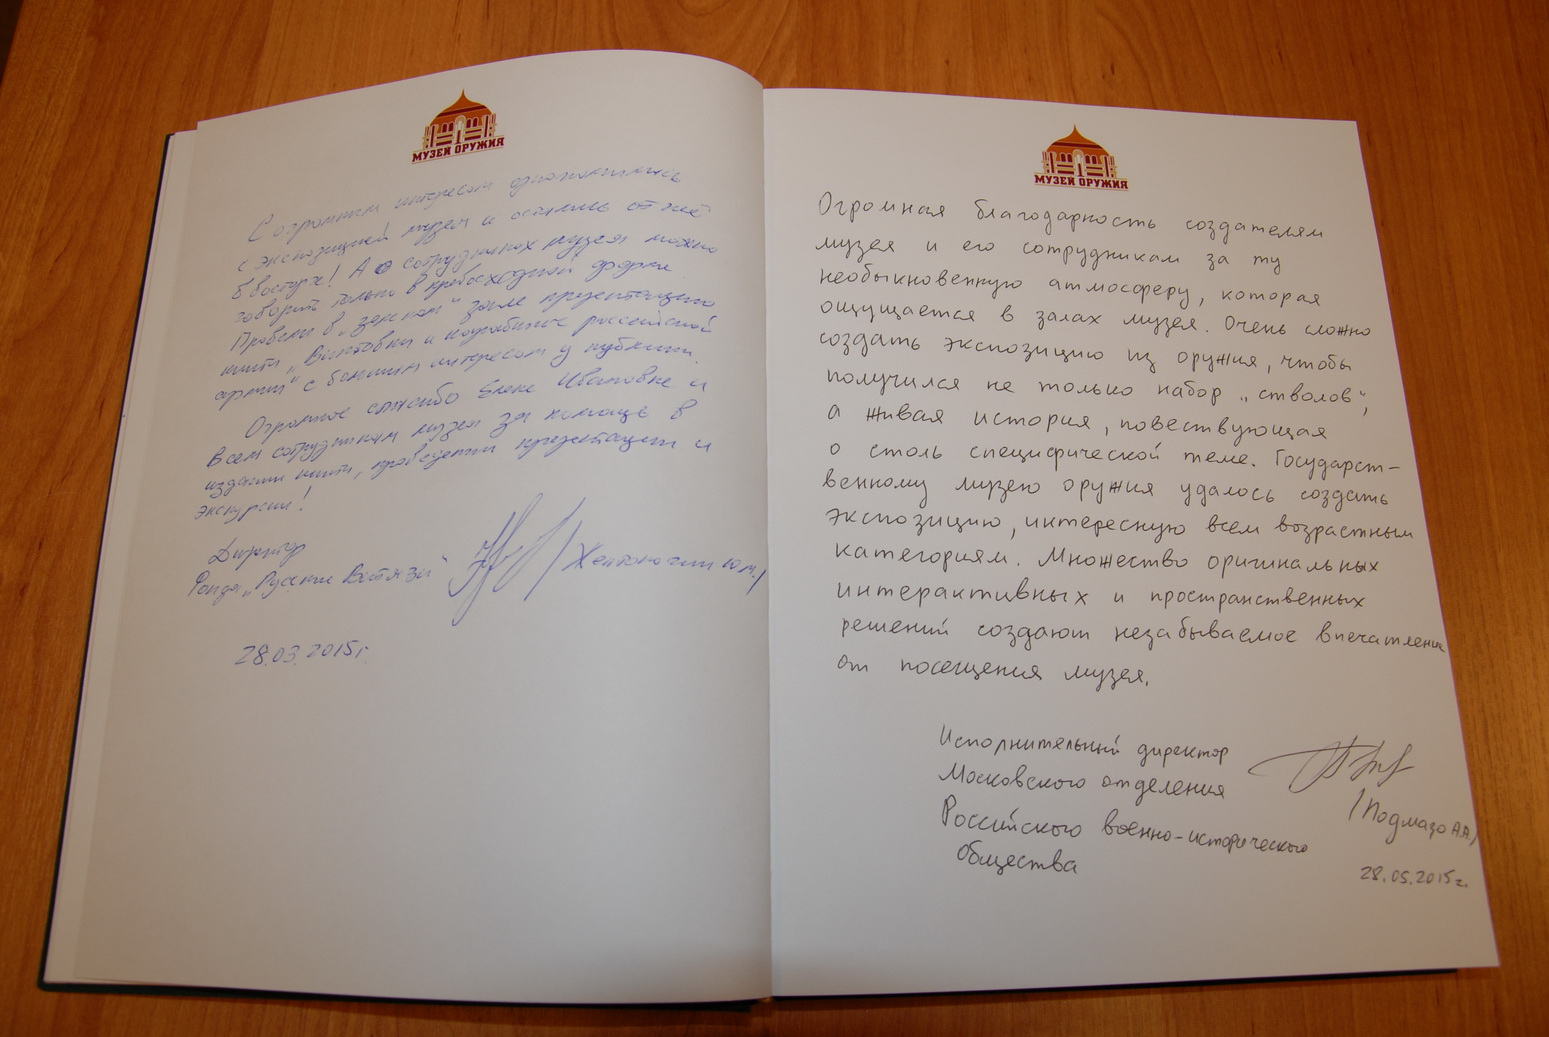 МУЗЕЙ ОРУЖИЯ
С огромным интересом ознакомились
с экспозицией музея и остались от неё
в восторге! А о сотрудниках музея можно
говорить только в превосходной форме.
Провели в "зале презентацию
книги "Винтовки и карабины российской
армии" с большим интересом у публики.
Огромное спасибо Елене Ивановне и
всем сотрудникам музея за помощь в
издании книги, проведении презентации и
экскурсии!
Директор
Фонда "Русские Витязи"
28.03.2015г.
МУЗЕЙ ОРУЖИЯ
Огромная благодарность создателям
музея и его сотрудникам за ту
необыкновенную атмосферу, которая
ощущается в залах музея. Очень сложно
создать экспозицию из оружия, чтобы
получился не только набор „стволов“,
а живая история, повествующая
о столь специфической теме. Государст-
венному музею оружия удалось создать
экспозицию, интересную всем возрастным
категориям. Множество оригинальных
интерактивных и пространственных
решений создают незабываемое впечатление
от посещения музея.
Исполнительный директор
Московского отделения
Российского военно-исторического
общества
/Подмазо А.А./
28.05.2015г.